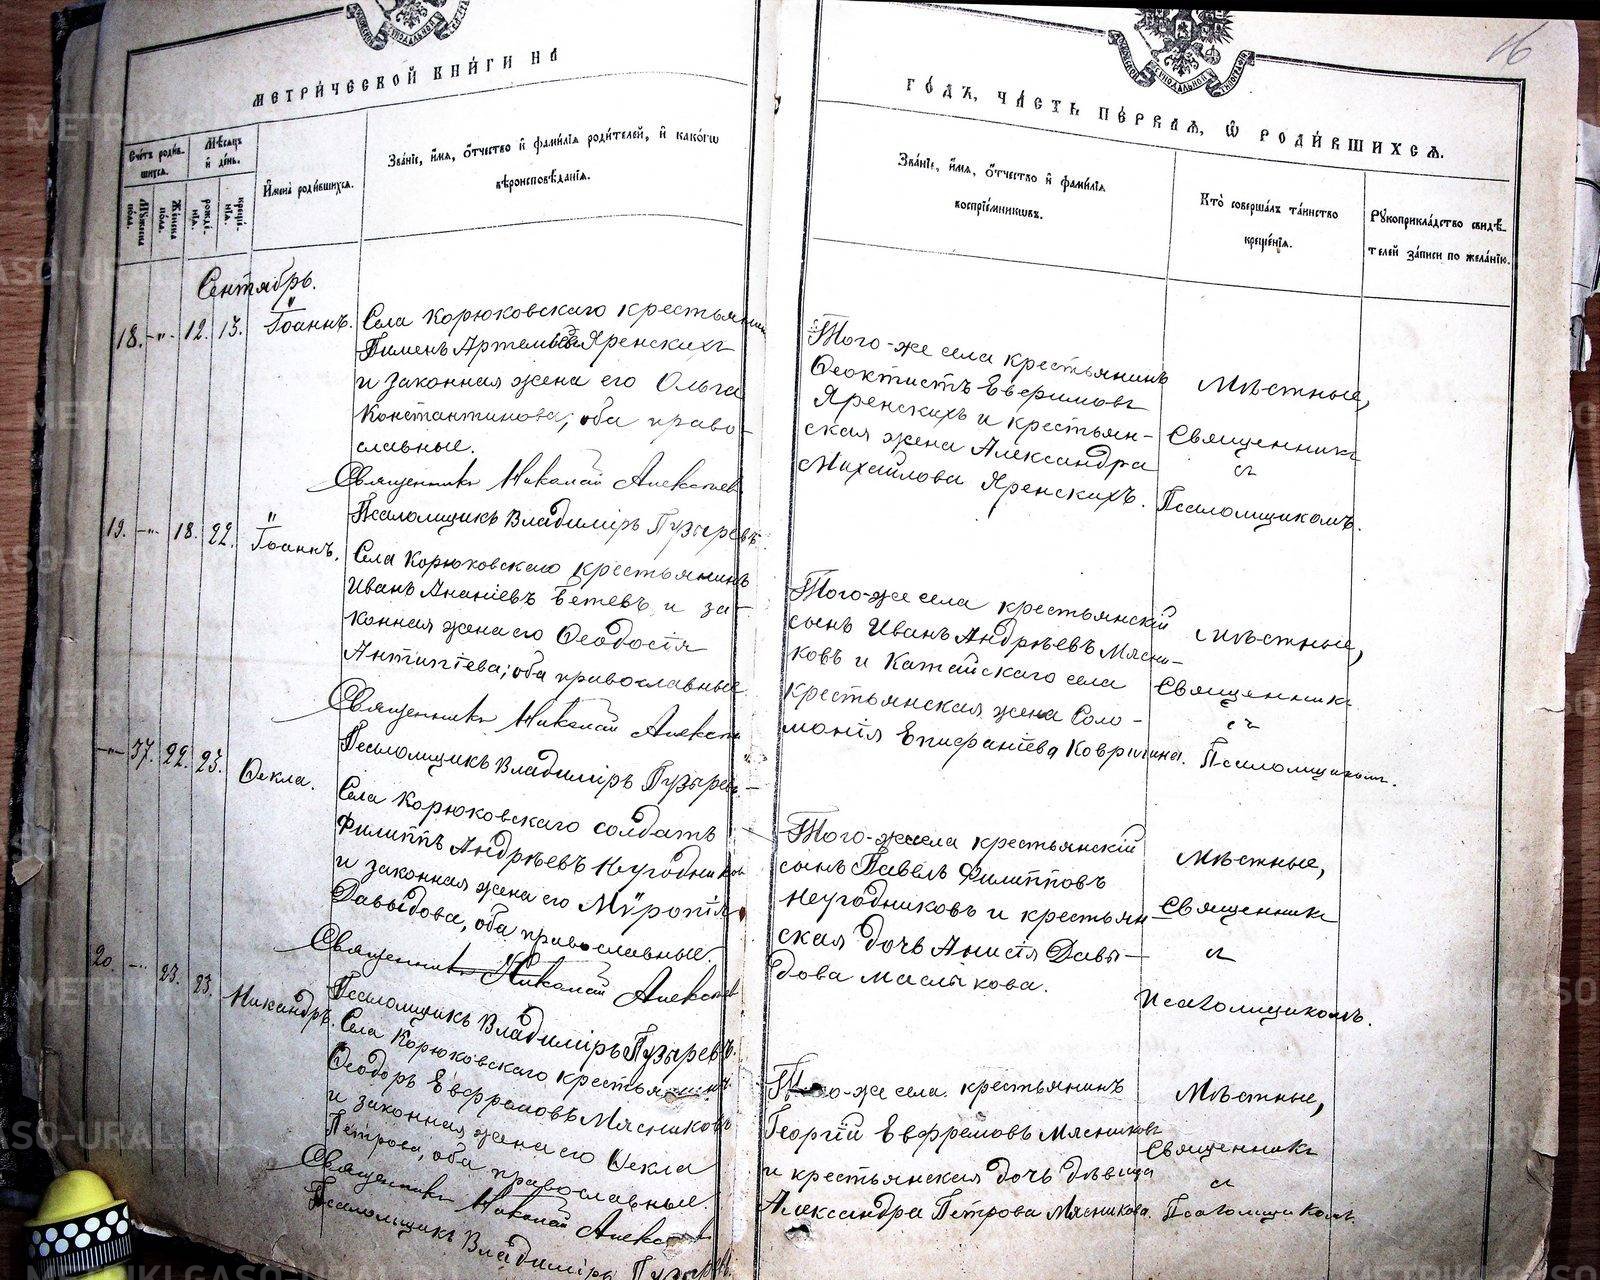 16
МЕТРИ́ЧЕСКОЙ КНИ́ГИ НА
ГО́ДЪ, ЧА́СТЬ ПЕ́РВАЯ, Ѽ РОДИ́ВШИХСЯ.
Сче́тъ роди́вшихся.
Мѣ́сяцъ и҆ де́нь.
Му́жеска по́ла.
Же́нска по́ла.
рожде́нїѧ.
креще́нїѧ.
И҆мена̀ роди́вшихся.
Зва́нїе, и҆́мѧ, ѻ҆́тчество и҆ фами́лїѧ роди́телей, и҆ како́гѡ
вѣроисповѣ́данїѧ.
Зва́нїе, и҆́мѧ, ѻ҆́тчество и҆ фами́лїѧ
воспрїе́мникѡвъ.
Кто̀ соверша́лъ та́инство
креще́нїѧ.
Рꙋкоприкла́дство свидѣ́-
телей за́писи по жела́нїю.
Сентябрь.
18. -"- 12. 13. Іоаннъ.
Села Корюковскаго крестьянинъ
Пименъ Артемьевъ Яренскихъ
и законная жена его Ольга
Константинова; оба право-
славные.
Священникъ Николай Алексеев
Псаломщикъ Владиміръ Пузыревъ.
Того-же села крестьянинъ
Ѳеоктистъ Евфимовъ
Яренскихъ и крестьян-
ская жена Александра
Михайлова Яренскихъ.
Мѣстные,
Священникъ
съ
Псаломщикомъ.
19. -"- 18. 22. Іоаннъ.
Села Корюковскаго крестьянинъ
Иванъ Ананіевъ Бетевъ и за-
конная жена его Ѳеодосія
Антипіева; оба православные.
Священникъ Николай Алексеев
Псаломщикъ Владиміръ Пузыревъ.
Того-же села крестьянскій
сынъ Иванъ Андрѣевъ Мясни-
ковъ и Катайскаго села
крестьянская жена Соло-
монія Епифаніева Ковригина.
Мѣстные,
Священникъ
съ
Псаломщикомъ.
-"- 37. 22. 23. Ѳекла.
Села Корюковскаго солдатъ
Филиппъ Андрѣевъ Неугодников
и законная жена его Мѵропія
Давыдова, оба православные.
Священникъ Николай Алексеев
Псаломщикъ Владиміръ Пузыревъ.
Того-же села крестьянскій
сынъ Павелъ Филипповъ
Неугодниковъ и крестьян-
ская дочь Анисія Давы-
дова Маслыкова.
Мѣстные,
Священникъ
съ
Псаломщикомъ.
20. -"- 23. 23. Никандръ.
Села Корюковскаго крестьянинъ
Ѳеодоръ Евфремовъ Мясниковъ
и законная жена его Ѳекла
Петрова, оба православные.
Священникъ Николай Алексеев
Псаломщикъ Владиміръ Пузырев
Того-же села крестьянинъ
Георгій Евфремовъ Мясниковъ
и крестьянская дочь дѣвица
Александра Петрова Мясникова.
Мѣстные,
Священникъ
съ
Псаломщикомъ.
METRIKI.GASO-URAL.RU